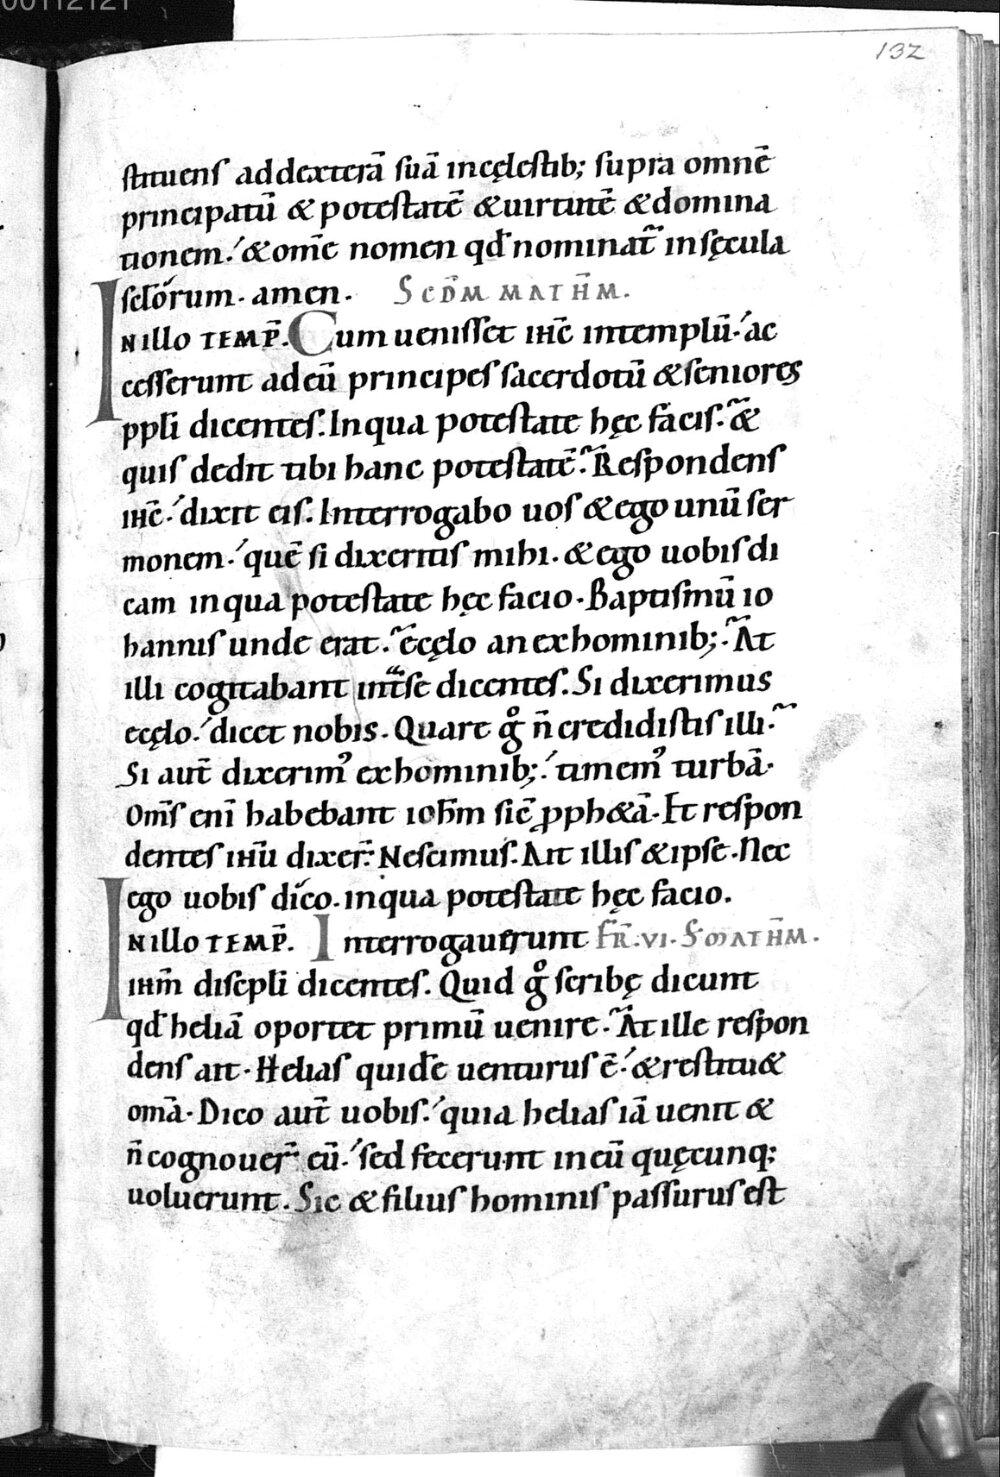 00112121
132
stituens ad dexterā suā in cęlestib; supra omnē
principatū & potestatē & uirtutē & domina
tionem. & om̄e nomen qđ nominat̄ in sęcula
sclórum. amen. Scd̄m math̄m.
In illo temp̄. Cum uenisset ih̄c in templū. ac
cesserunt ad eū principes sacerdotū & seniores
ppli dicentes. In qua potestate hęc facis. &
quis dedit tibi hanc potestatē. Respondens
ih̄c. dixit eis. Interrogabo uos & ego unū ser
monem. quē si dixeritis mihi. & ego uobis di
cam in qua potestate hęc facio. Baptismū io
hannis unde erat. e cęlo an ex hominib;. At
illi cogitabant int̄ se dicentes. Si dixerimus
e cęlo. dicet nobis. Quare gͦ n̄ credidistis illi.
Si aut̄ dixerim᾽ ex hominib;. timem᾽ turbā.
Om̄s eni̅ habebant ioh̄m sic̄ ꝓph&ā. Et respon
dentes ih̄u dixer̄. Nescimus. Ait illis & ipse. Nec
ego uobis dico. in qua potestate hęc facio.
In illo temp̄. Interrogauerunt Fr̄. vi. S. math̄m.
ih̄m discpli dicentes. Quid gͦ scribę dicunt
qđ heliā oportet primū uenire. At ille respon
dens ait. Helias quidē uenturus ē. & restitu&
om̄a. Dico aut̄ uobis. quia helias iā uenit &
n̄ cognouer̄ eū. sed fecerunt in eū quęcunq;
uoluerunt. Sic & filius hominis passurus est